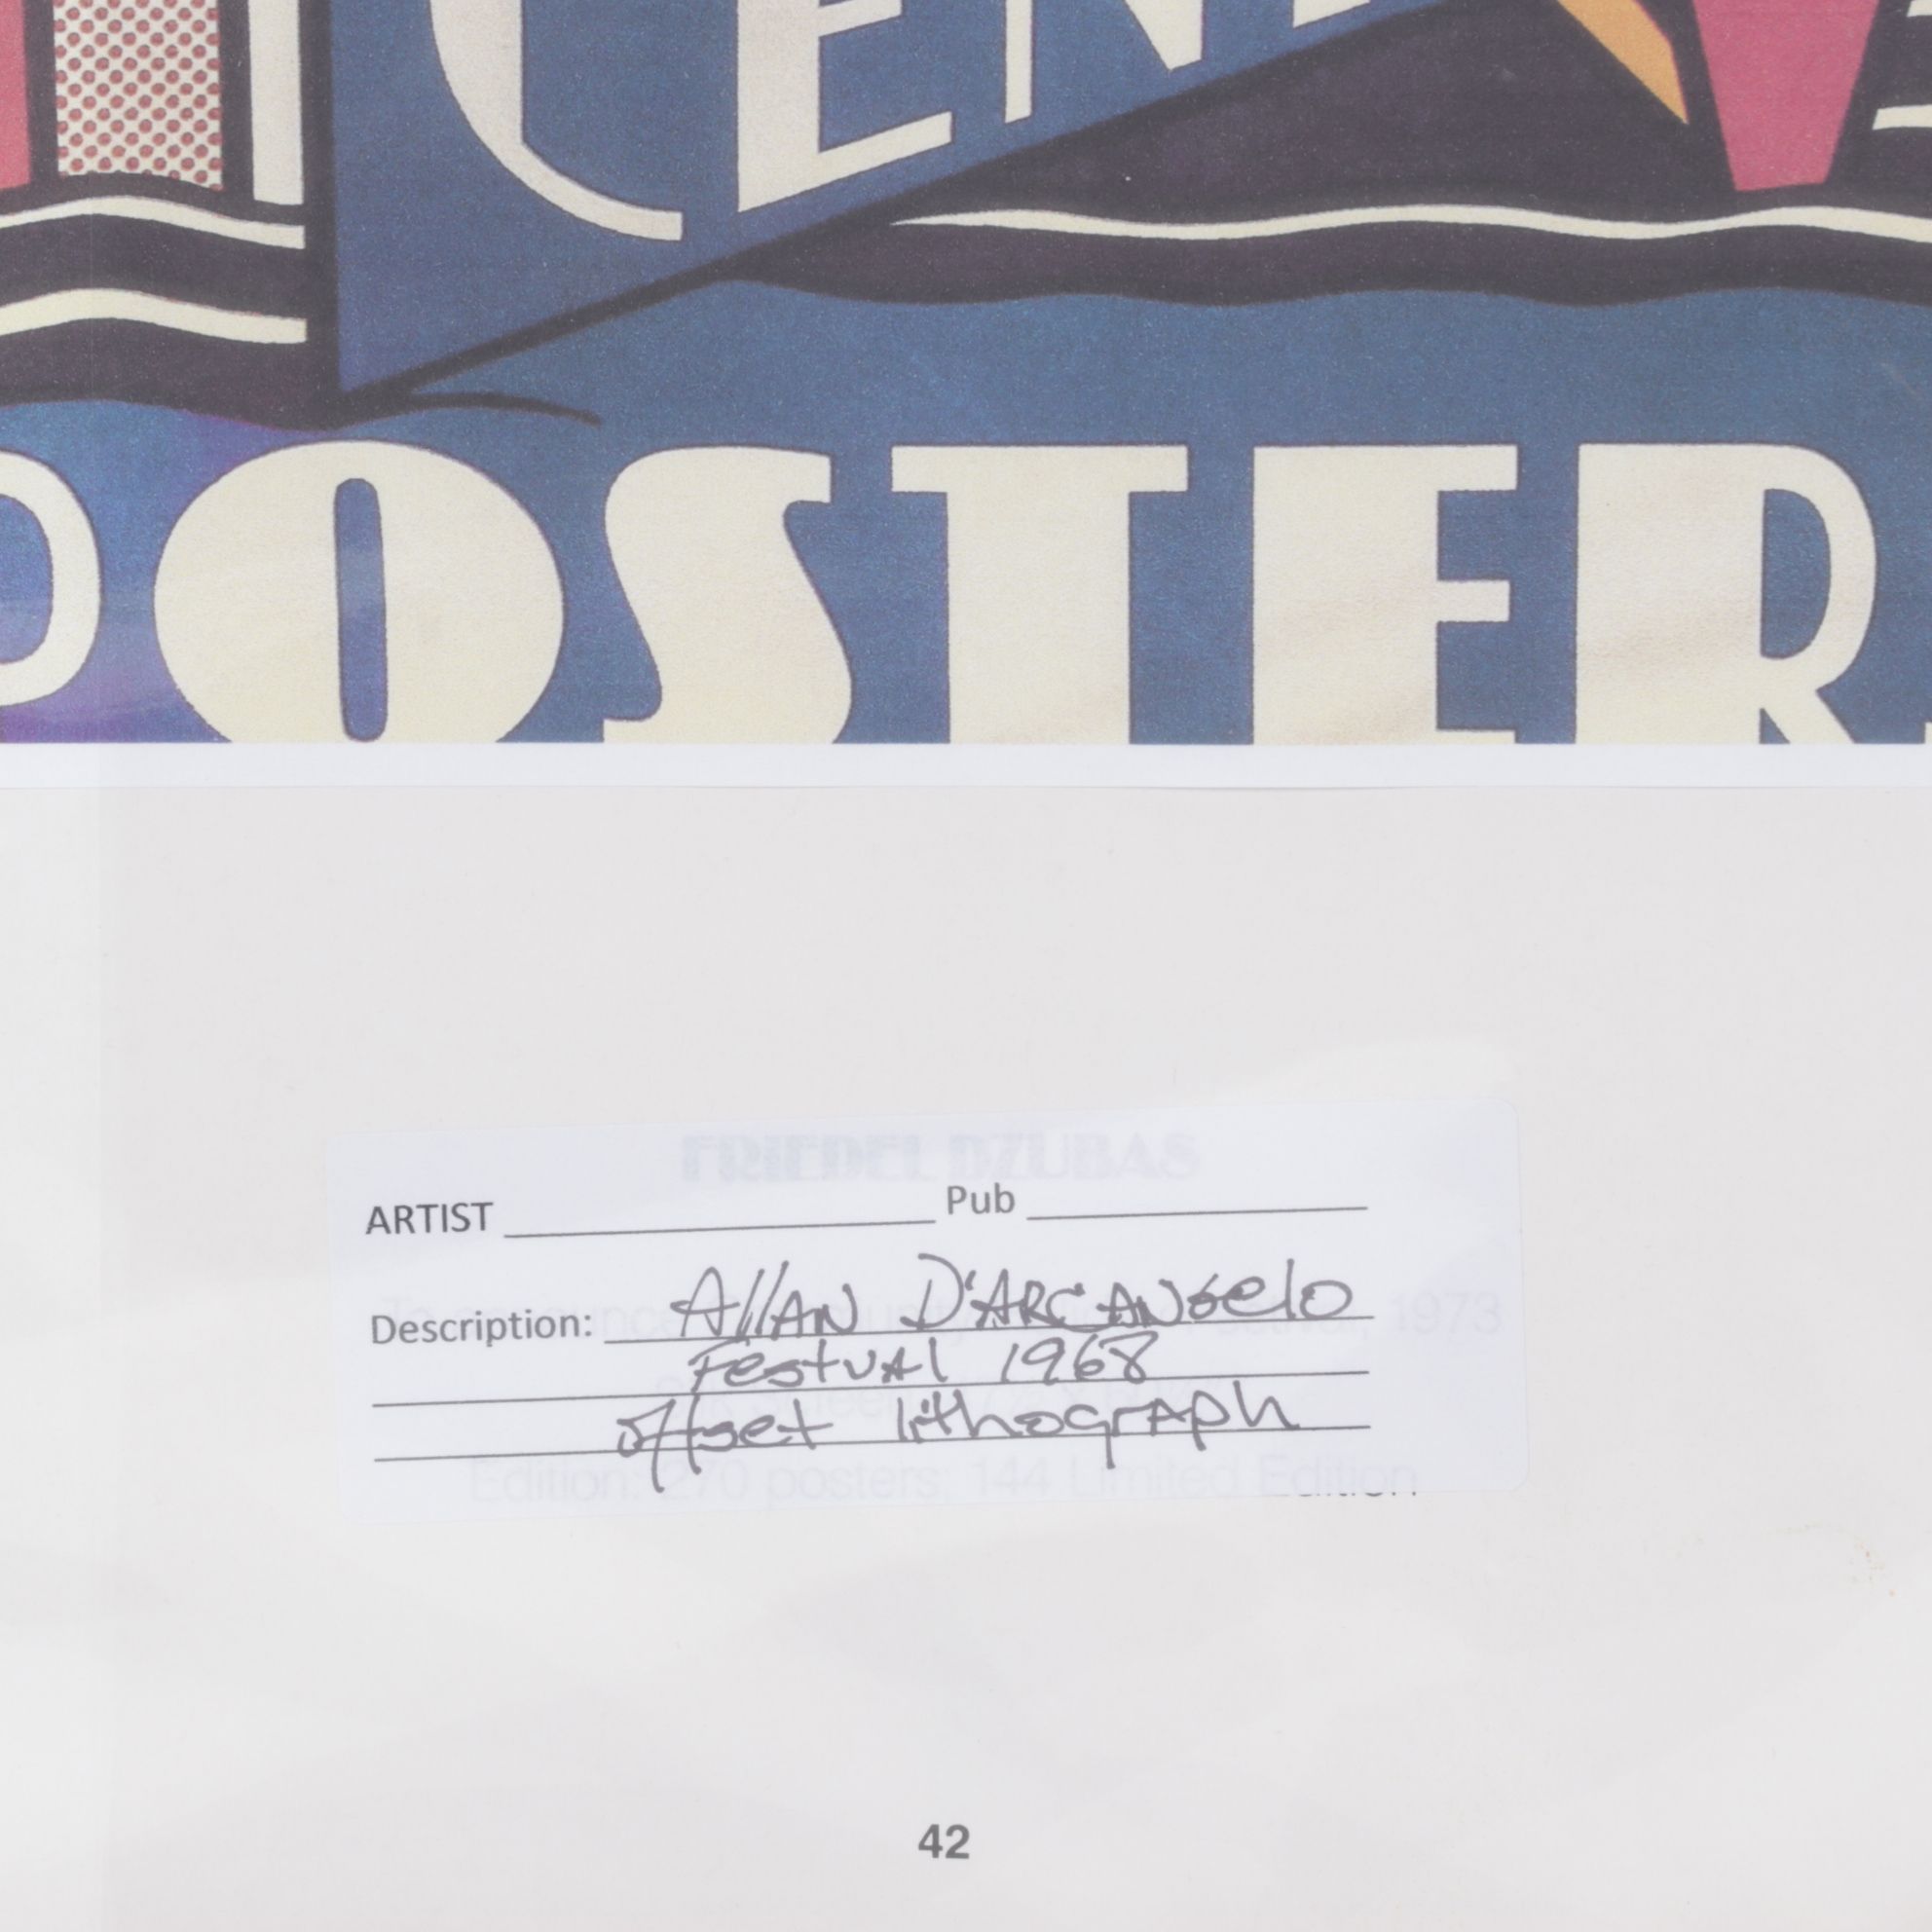 CEN
POSTER
FRIEDEL DZUBAS
ARTIST Pub
Description: Allan D'Arcangelo
Festival 1968
offset lithograph
Edition: 270 posters; 144 Limited Edition
42